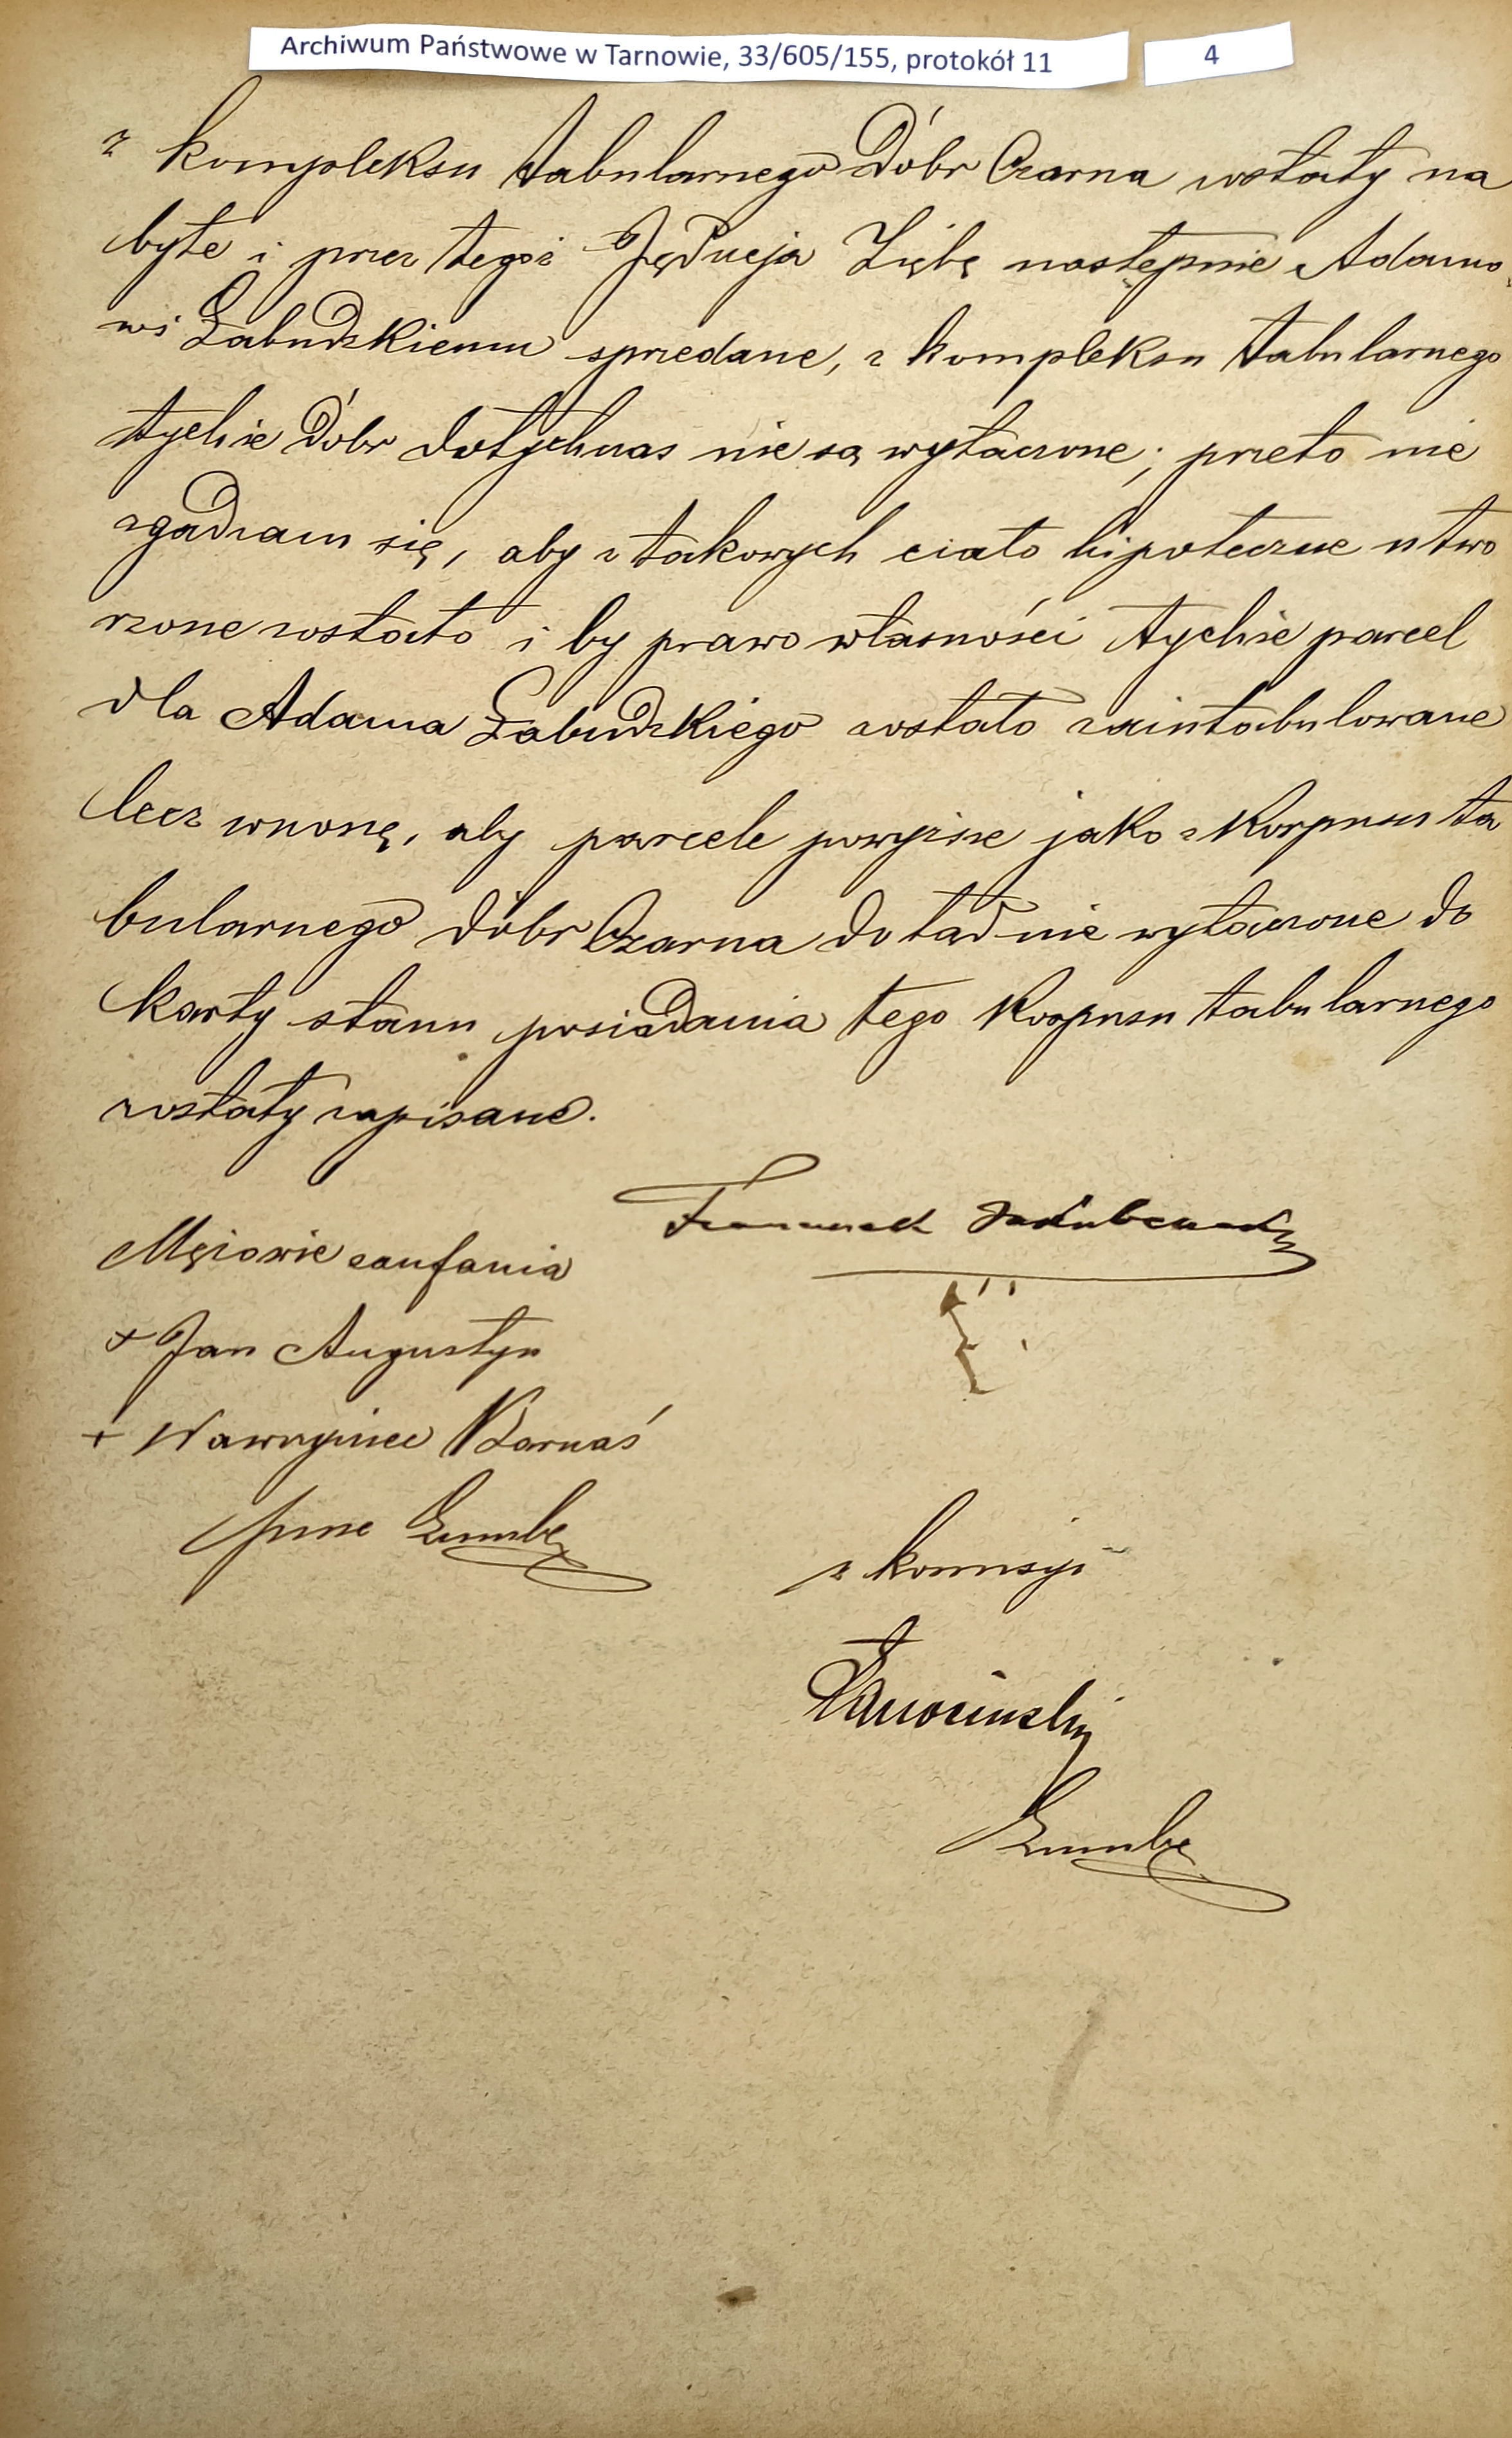 Archiwum Państwowe w Tarnowie, 33/605/155, protokół 11
4
z kompleksu tabularnego Dóbr Czarna zostały na
byte i przez tegoż Jędrzeja Ziębę następnie Adamo
wi Łabudzkiemu sprzedane, z kompleksu tabularnego
tychże Dóbr dotychczas nie są wyłączone; przeto nie
zgadzam się, aby z takowych ciało hipoteczne utwo
rzone zostało i by prawo własności tychże parcel
dla Adama Łabudzkiego zostało zaintabulowane
lecz wnoszę, aby parcele powyższe jako z Korpusu ta
bularnego dóbr Czarna dotąd nie wyłączone do
karty stanu posiadania tego Korpusu tabularnego
zostały zapisane.
Franciszek
Mężowie zaufania
+ Jan Augustyn
+ Wawrzyniec Barnaś
z komisyi